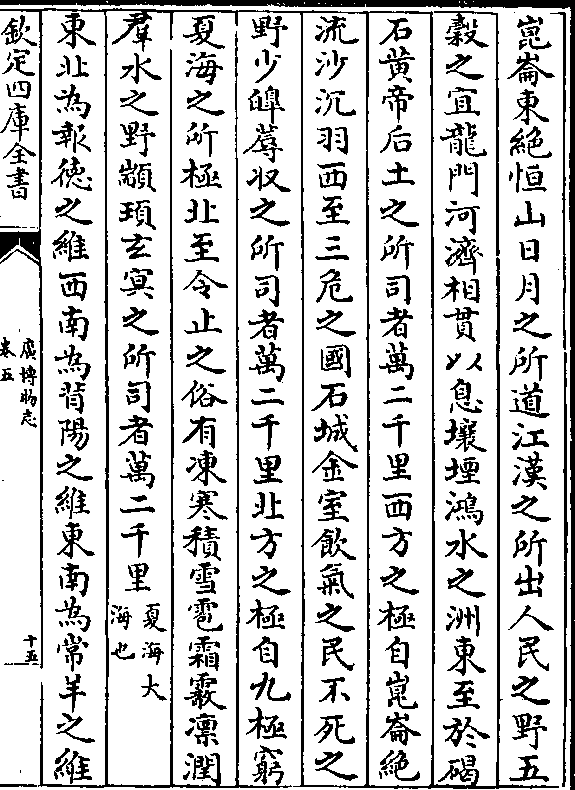 崑崙東絕恒山日月之所道江漢之所出人民之野五
穀之宜龍門河濟相貫以息壤堙鴻水之洲東至於碣
石黄帝后土之所司者萬二千里西方之極自崑崙絕
流沙沉羽西至三危之國石城金室飲氣之民不死之
野少皥蓐収之所司者萬二千里北方之極自九極窮
夏海之所極北至令止之俗有凍寒積雪雹霜霰凛潤
羣水之野顓頊玄冥之所司者萬二千里夏海大海也
東北為報徳之維西南為背陽之維東南為常羊之維
欽定四庫全書
廣博物志
卷五
十五